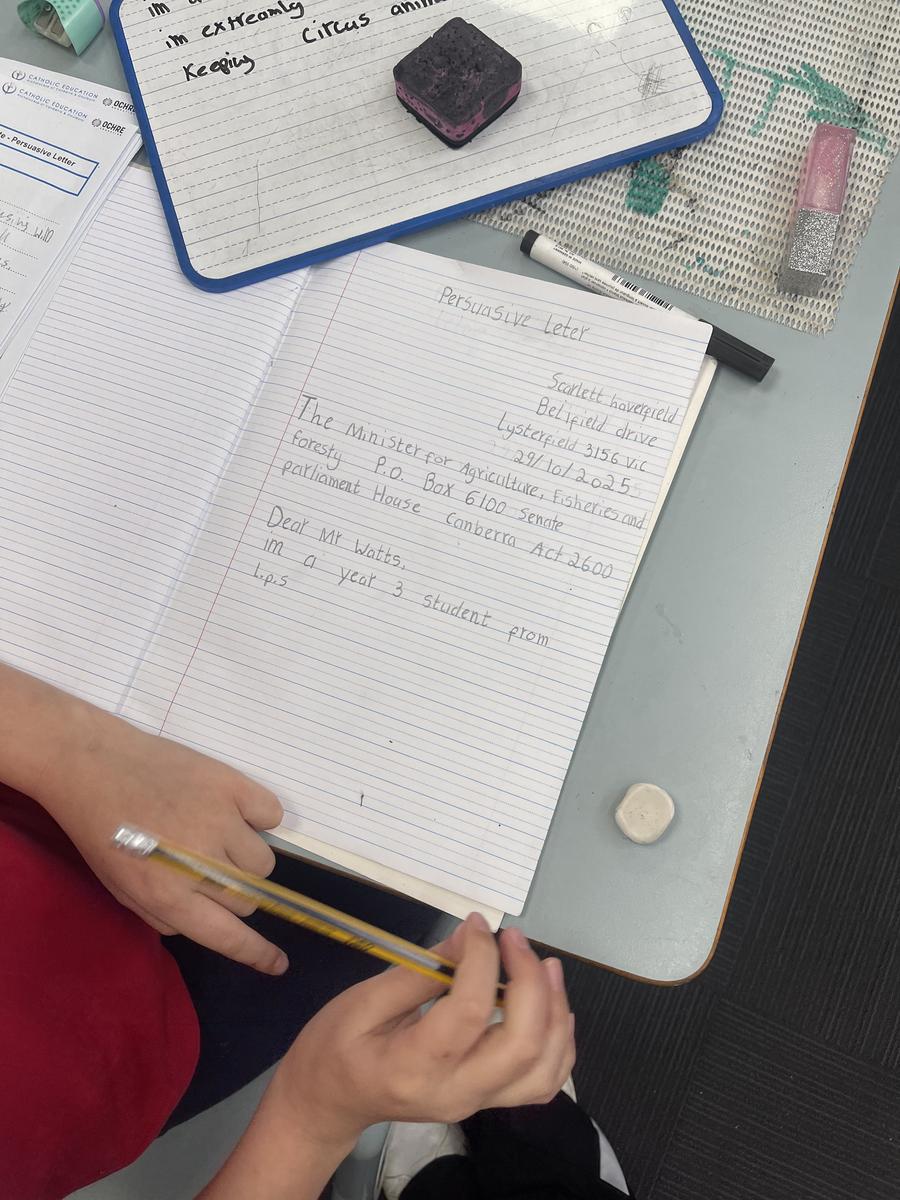 im extreamly
Keeping Circus
CATHOLIC EDUCATION
CATHOLIC EDUCATION
OCHRE
OCHRE
- Persuasive Letter
Persuasive leter
Scarlett haverfield
Bellfield drive
Lysterfield 3156 Vic
29/10/2025
The Minister for Agriculture, Fisheries and
foresty P.O. Box 6100 Senate
parliament House Canberra Act 2600
Dear Mr Watts,
im a year 3 student from
l.p.s